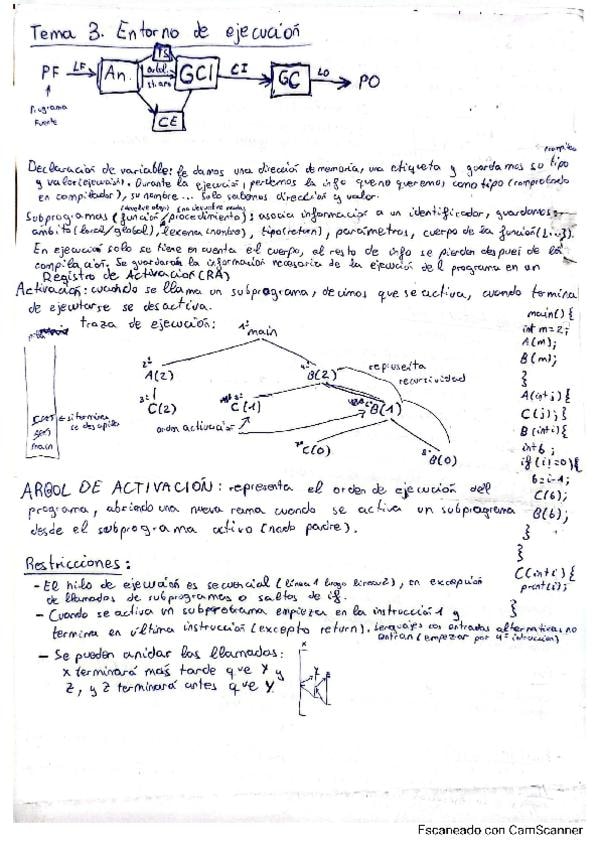 Tema 3. Entorno de ejecución
PF LF An. GCI CI GC LO PO
TS
Programa
Fuente
CE
Declaración de variable: le damos una dirección de memoria, una etiqueta y guardamos su tipo
y valor (ejecución). Durante la ejecución, perdemos la info que no queremos, como tipo (comprobado
en compilador), su nombre... Solo sabemos dirección y valor.
Subprogramas (función/procedimiento): asocia información a un identificador, guardamos:
ambito (local/global), lexema (nombre), tipo (return), parámetros, cuerpo de la función {...}.
En ejecución solo se tiene en cuenta el cuerpo, el resto de info se pierden después de la
compilación. Se guardarán la información necesaria de la ejecución del programa en un
Registro de Activación (RA)
Activación: cuando se llama un subprograma, decimos que se activa, cuando termina
de ejecutarse se desactiva.
traza de ejecución:
1º main
2º A(2)
4º B(2)
representa
recursividad
3º C(2)
C(1)
B(1)
orden activación
C(0)
B(0)
si termina
se desapila
main
main() {
int m=2;
A(m);
B(m);
}
A(int j) {
C(j); }
B(int i) {
int b;
if (i!=0) {
b=i-1;
C(b);
B(b);
}
}
C(int i) {
print(i);
}
ARBOL DE ACTIVACION: representa el orden de ejecución del
programa, abriendo una nueva rama cuando se activa un subprograma
desde el subprograma activo (nodo padre).
Restricciones:
- El hilo de ejecución es secuencial (línea 1 luego línea 2), en excepción
de llamadas de subprogramas o saltos de if.
- Cuando se activa un subprobrama empieza en la instrucción 1 y
termina en última instrucción (excepto return). Lenguajes con entradas alternativas no
entran (empezar por 4º instrucción)
- Se pueden anidar las llamadas:
X terminará más tarde que Y y
Z, y Z terminará antes que Y
X
Y
Z
Escaneado con CamScanner